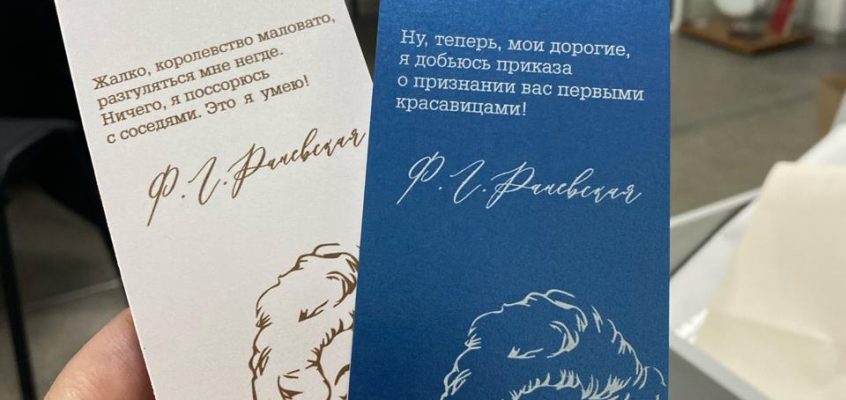 Жалко, королевство маловато,
разгуляться мне негде.
Ничего, я поссорюсь
с соседями. Это я умею!
Ф. Г. Раневская
Ну, теперь, мои дорогие,
я добьюсь приказа
о признании вас первыми
красавицами!
Ф. Г. Раневская